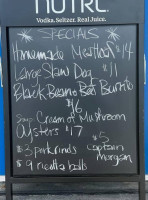 NUTRL
Vodka. Seltzer. Real Juice.
SPECIALS
Homemade Meatloaf $14
Large Slaw Dog $11
Black Bean Burrito
$16
Soup Cream of Mushroom
Oysters $17
$5
$3 porkrinds Captain
$4 balls Morgan